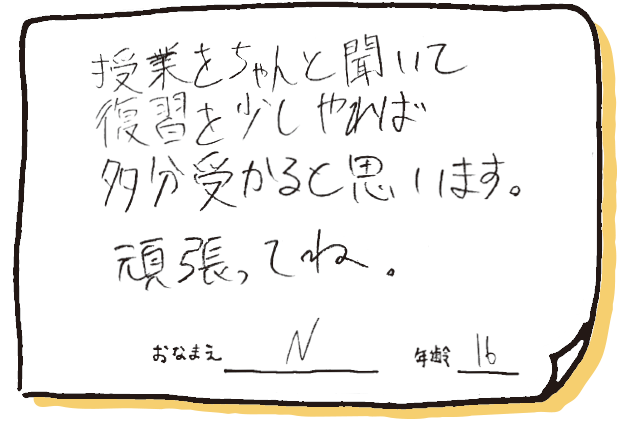 授業をちゃんと聞いて
復習を少しやれば
多分受かると思います。
頑張ってね。
おなまえ N 年齢 16